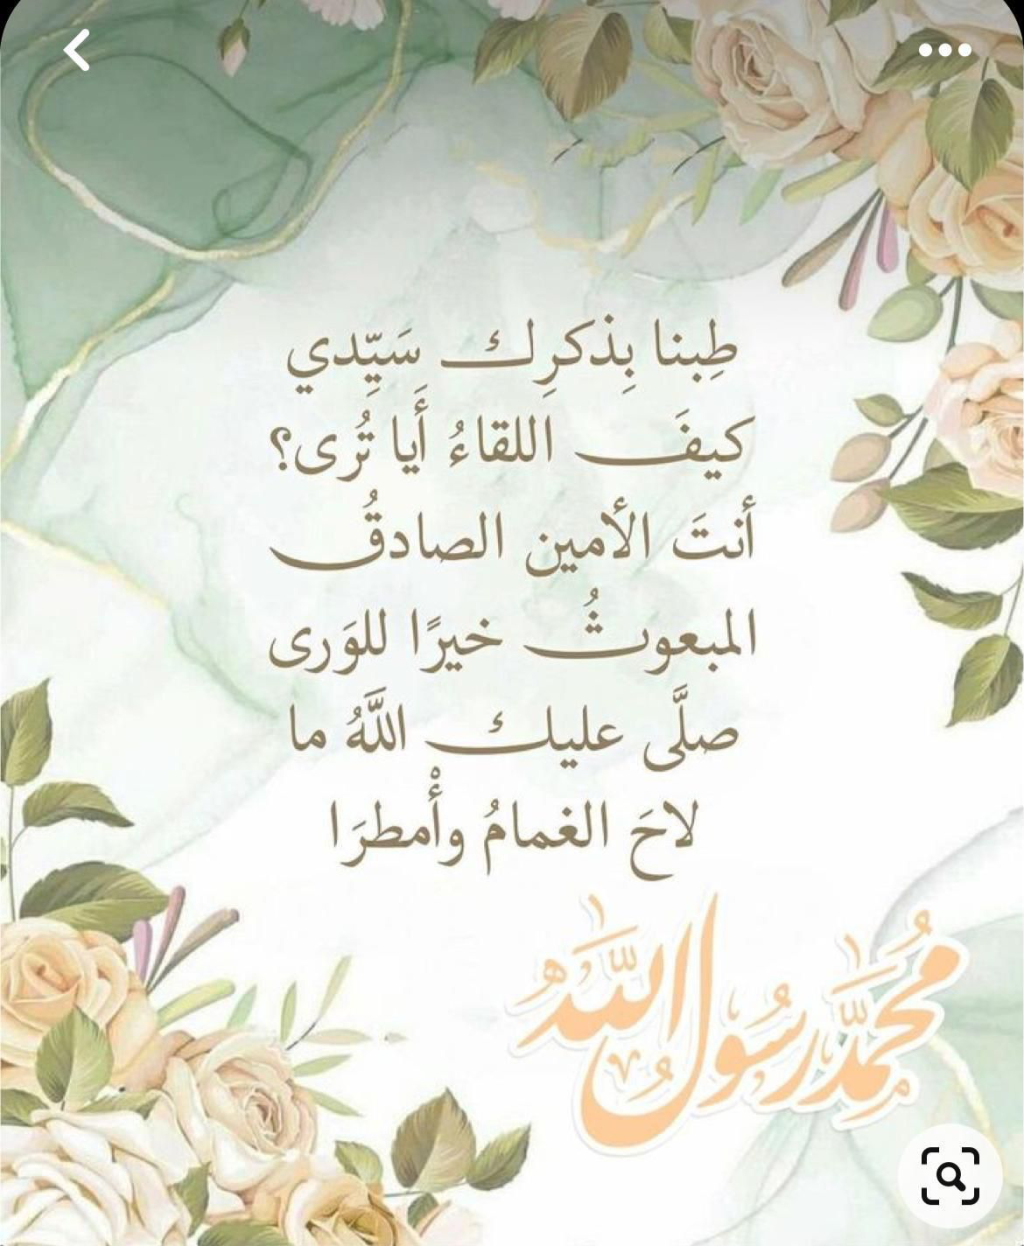 طِبنا بِذكرِك سَيِّدي
كيفَ اللقاءُ أَيا تُرى؟
أنتَ الأمين الصادقُ
المبعوثُ خيرًا للوَرى
صلَّى عليك اللَّهُ ما
لاحَ الغمامُ وأْمطرَا
مُحَمَّد رَسُول اللَّهُ